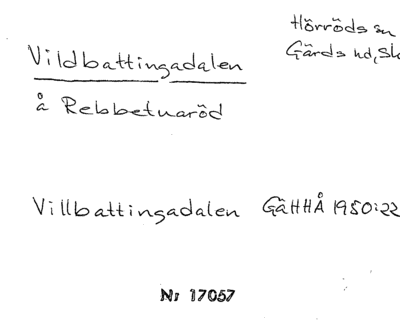 Vildbattingadalen
Hörröds sn
Gärds hd, Sk
å Rebbetuaröd
Villbattingadalen GäHHÅ 1950:22
Nr 17057